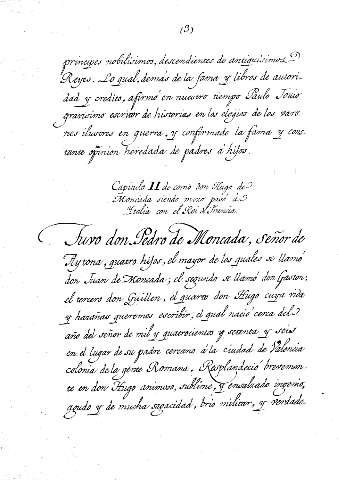 (3)
principes nobilisimos, descendientes de antiquisimos
Reyes. Lo qual, demás de la fama y libros de autori-
dad y credito, afirmó en nuestro tiempo Paulo Jouio
gravisimo escritor de historias en los elogios de los varo-
nes ilustres en guerra, y confirmado la fama y cons-
tante opinion heredada de padres á hijos.
Capitulo II de como don Hugo de
Moncada siendo mozo pasó á
Italia con el Rei de Francia.
Tuvo don Pedro de Moncada, Señor de
Aytona, quatro hijos, el mayor de los quales se llamó
don Juan de Moncada; el segundo se llamó don Gaston;
el tercero don Guillen, el quarto don Hugo cuya vida
y hazañas queremos escribir, el qual nació cerca del
año del señor de mil y quatrocientos y setenta y seis
en el lugar de su padre cercano á la ciudad de Valencia
colonia de la gente Romana. Resplandeció brevemen-
te en don Hugo animoso, sublime, y ensalzado ingenio,
agudo y de mucha sagacidad, brio militar, y verdade